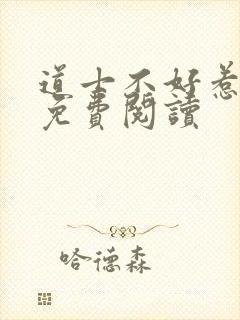 道士不好惹
免費閱讀
哈德森